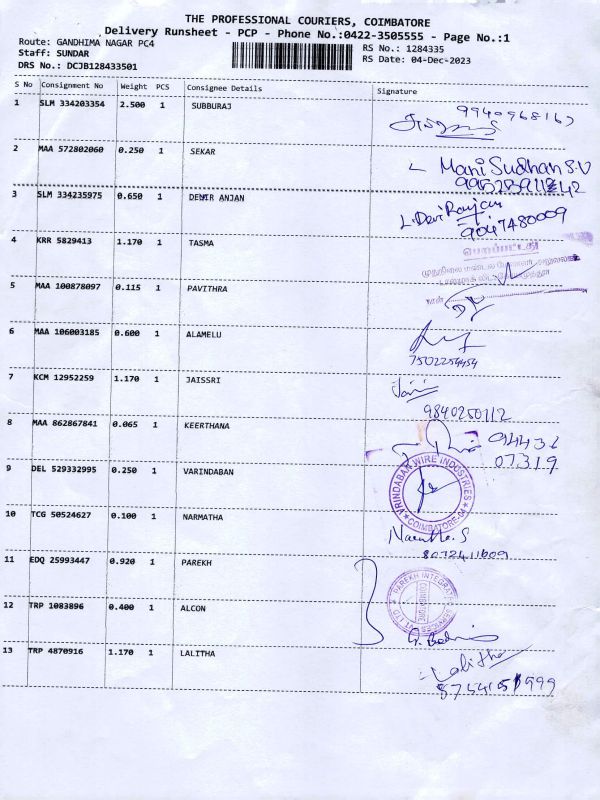 THE PROFESSIONAL COURIERS, COIMBATORE
Delivery Runsheet - PCP - Phone No.:0422-3505555 - Page No.:1
Route: GANDHIMA NAGAR PC4
RS No.: 1284335
Staff: SUNDAR
RS Date: 04-Dec-2023
DRS No.: DCJB128433501
S No Consignment No Weight PCS Consignee Details Signature
1 SLM 334203354 2.500 1 SUBBURAJ
2 MAA 572802060 0.250 1 SEKAR Mani Sudhan S.V
3 SLM 334235975 0.650 1 DEMIR ANJAN L. Devi Ranjan
9047480009
4 KRR 5829413 1.170 1 TASMA
5 MAA 100878097 0.115 1 PAVITHRA
6 MAA 106003185 0.600 1 ALAMELU
7502254454
7 KCM 12952259 1.170 1 JAISSRI
9840250112
8 MAA 862867841 0.065 1 KEERTHANA 94436
07319
9 DEL 529332995 0.250 1 VARINDABAN VRINDABAN WIRE INDUSTRIES
COIMBATORE
10 TCG 50524627 0.100 1 NARMATHA
8072411009
11 EDQ 25993447 0.920 1 PAREKH PAREKH INTEGRAT
COIMBATORE
12 TRP 1083896 0.400 1 ALCON
13 TRP 4870916 1.170 1 LALITHA Lalitha